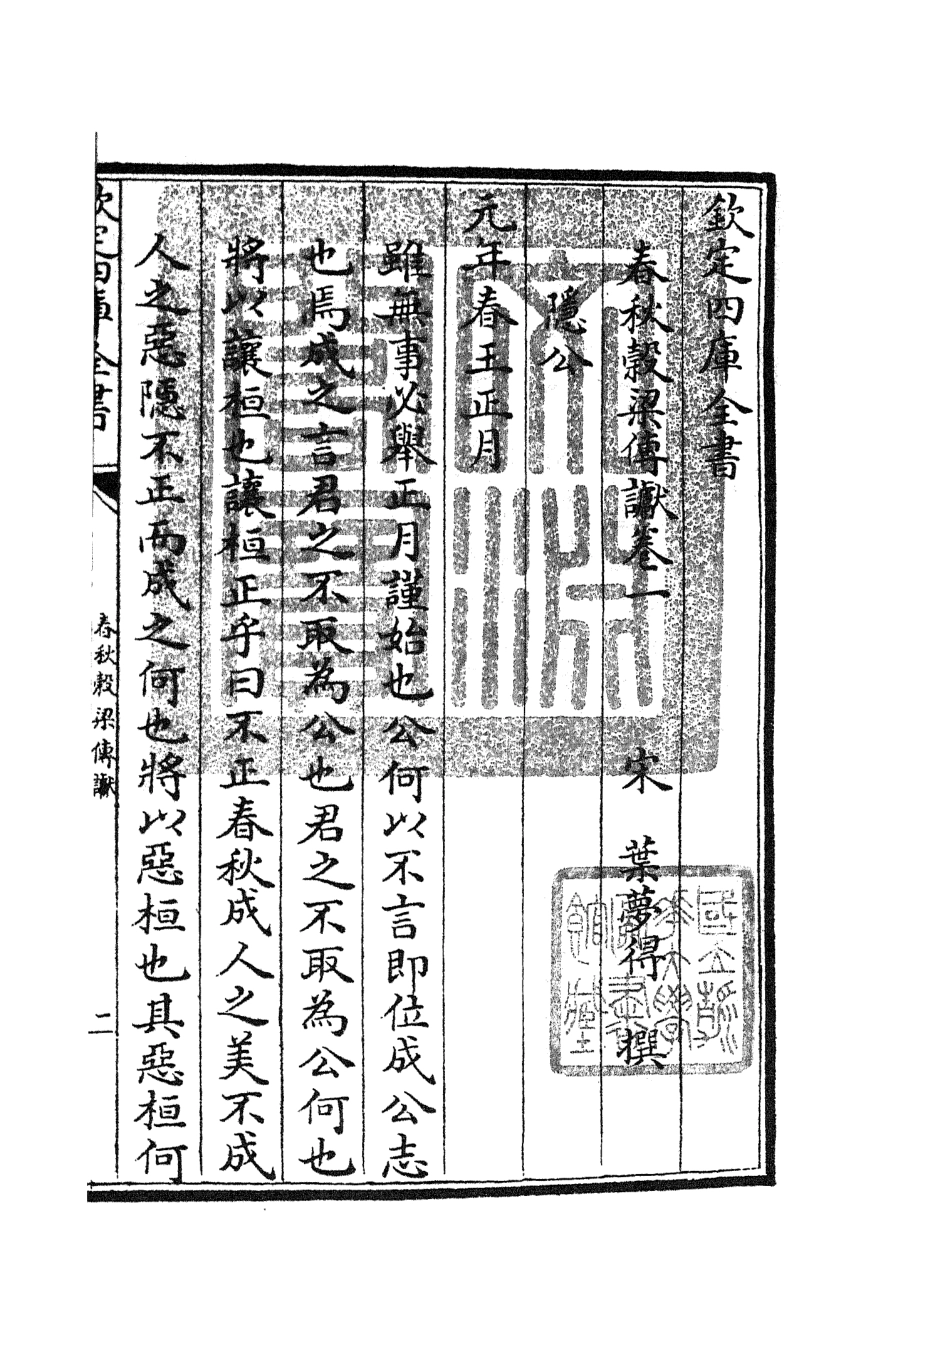 欽定四庫全書
春秋穀梁傳讞卷一 宋 葉夢得 撰
隱公
元年春王正月
雖無事必舉正月謹始也公何以不言即位成公志
也焉成之言君之不取為公也君之不取為公何也
將以讓桓也讓桓正乎曰不正春秋成人之美不成
人之惡隱不正而成之何也將以惡桓也其惡桓何
欽定四庫全書
春秋穀梁傳讞
二